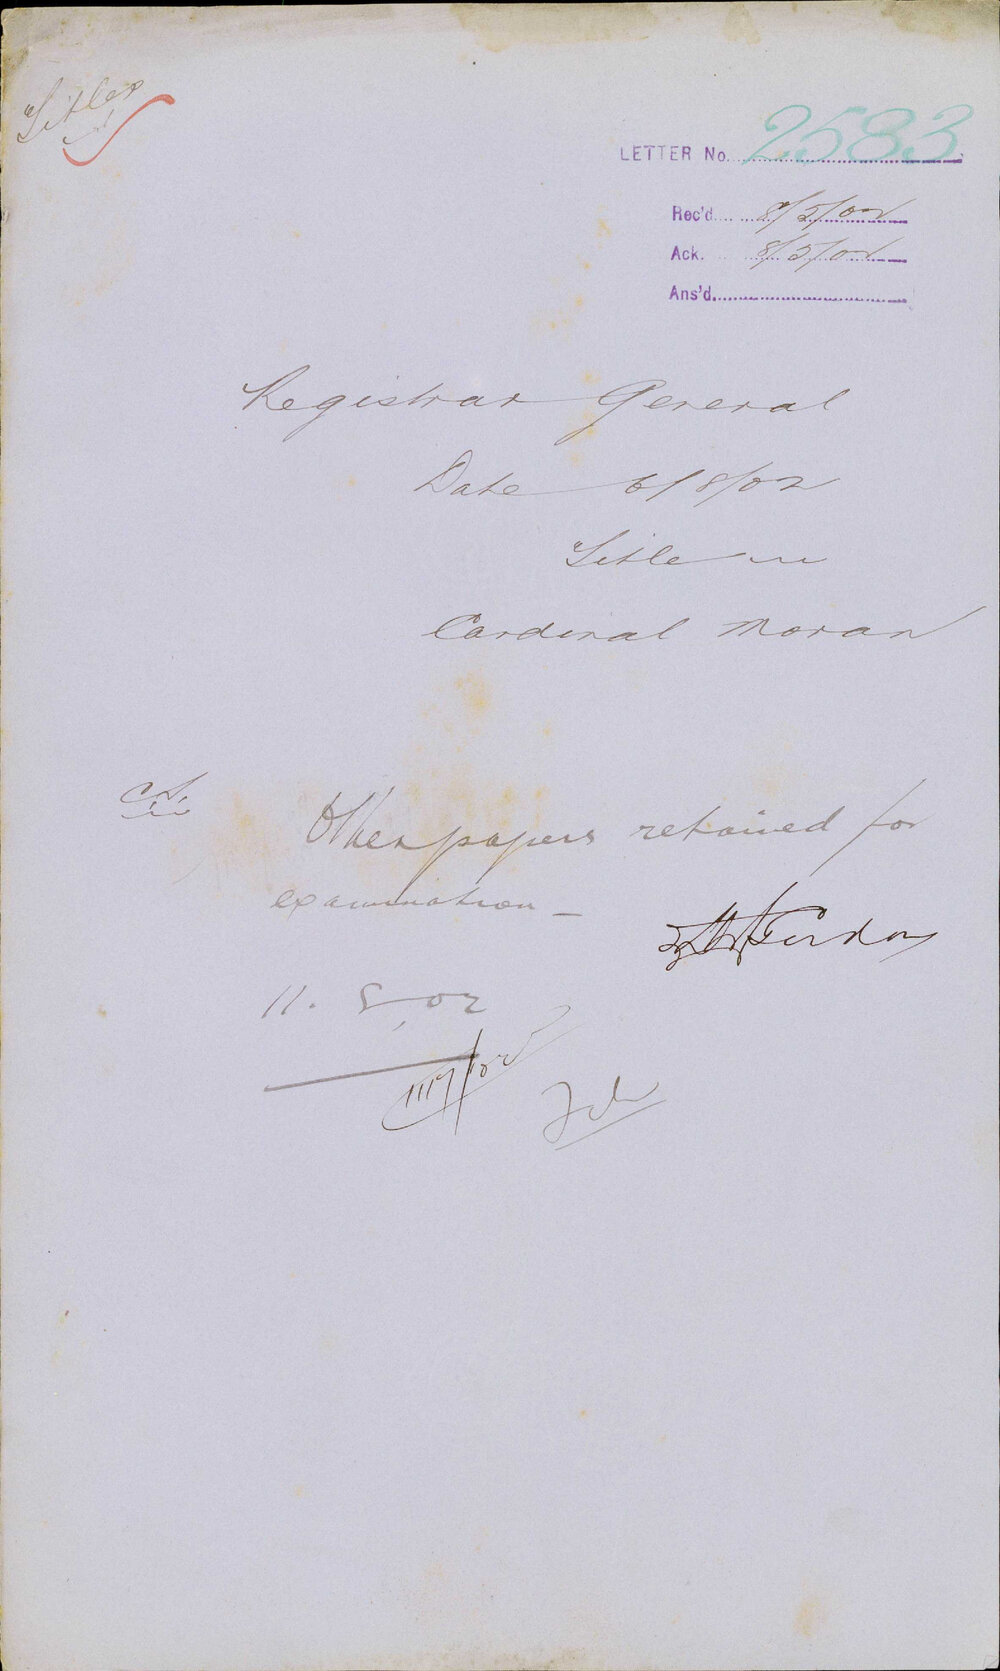 Titles
LETTER No. 2583
Rec'd. 8/5/02
Ack. 8/5/02
Ans'd.
Registrar General
Date 6/8/02
Title in
Cardinal Moran
Other papers retained for
examination —
Gordon
11. 8. 02